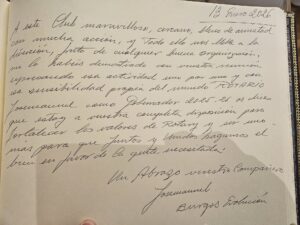 13 Enero 2026
A este Club maravilloso, cercano, lleno de amistad
con mucha acción, y todo ello nos lleva a la
fruto de cualquier buena organización,
me lo habéis demostrado en vuestra reunión
expresando esa actividad uno por uno y con
esa sensibilidad propia del mundo ROTARIO
Josemanuel como Gobernador es
que estoy a vuestra completa disposición para
fortalecer los valores de Rotary y
más para que juntos y unidos hagamos el
bien en favor de la gente necesitada.
Un Abrazo vuestro Compañero
Josemanuel
Burgos